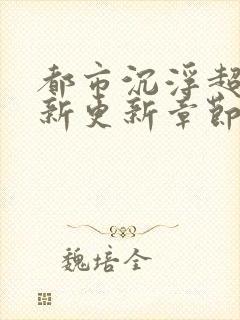 都市沉浮超
新更新章節
魏培全